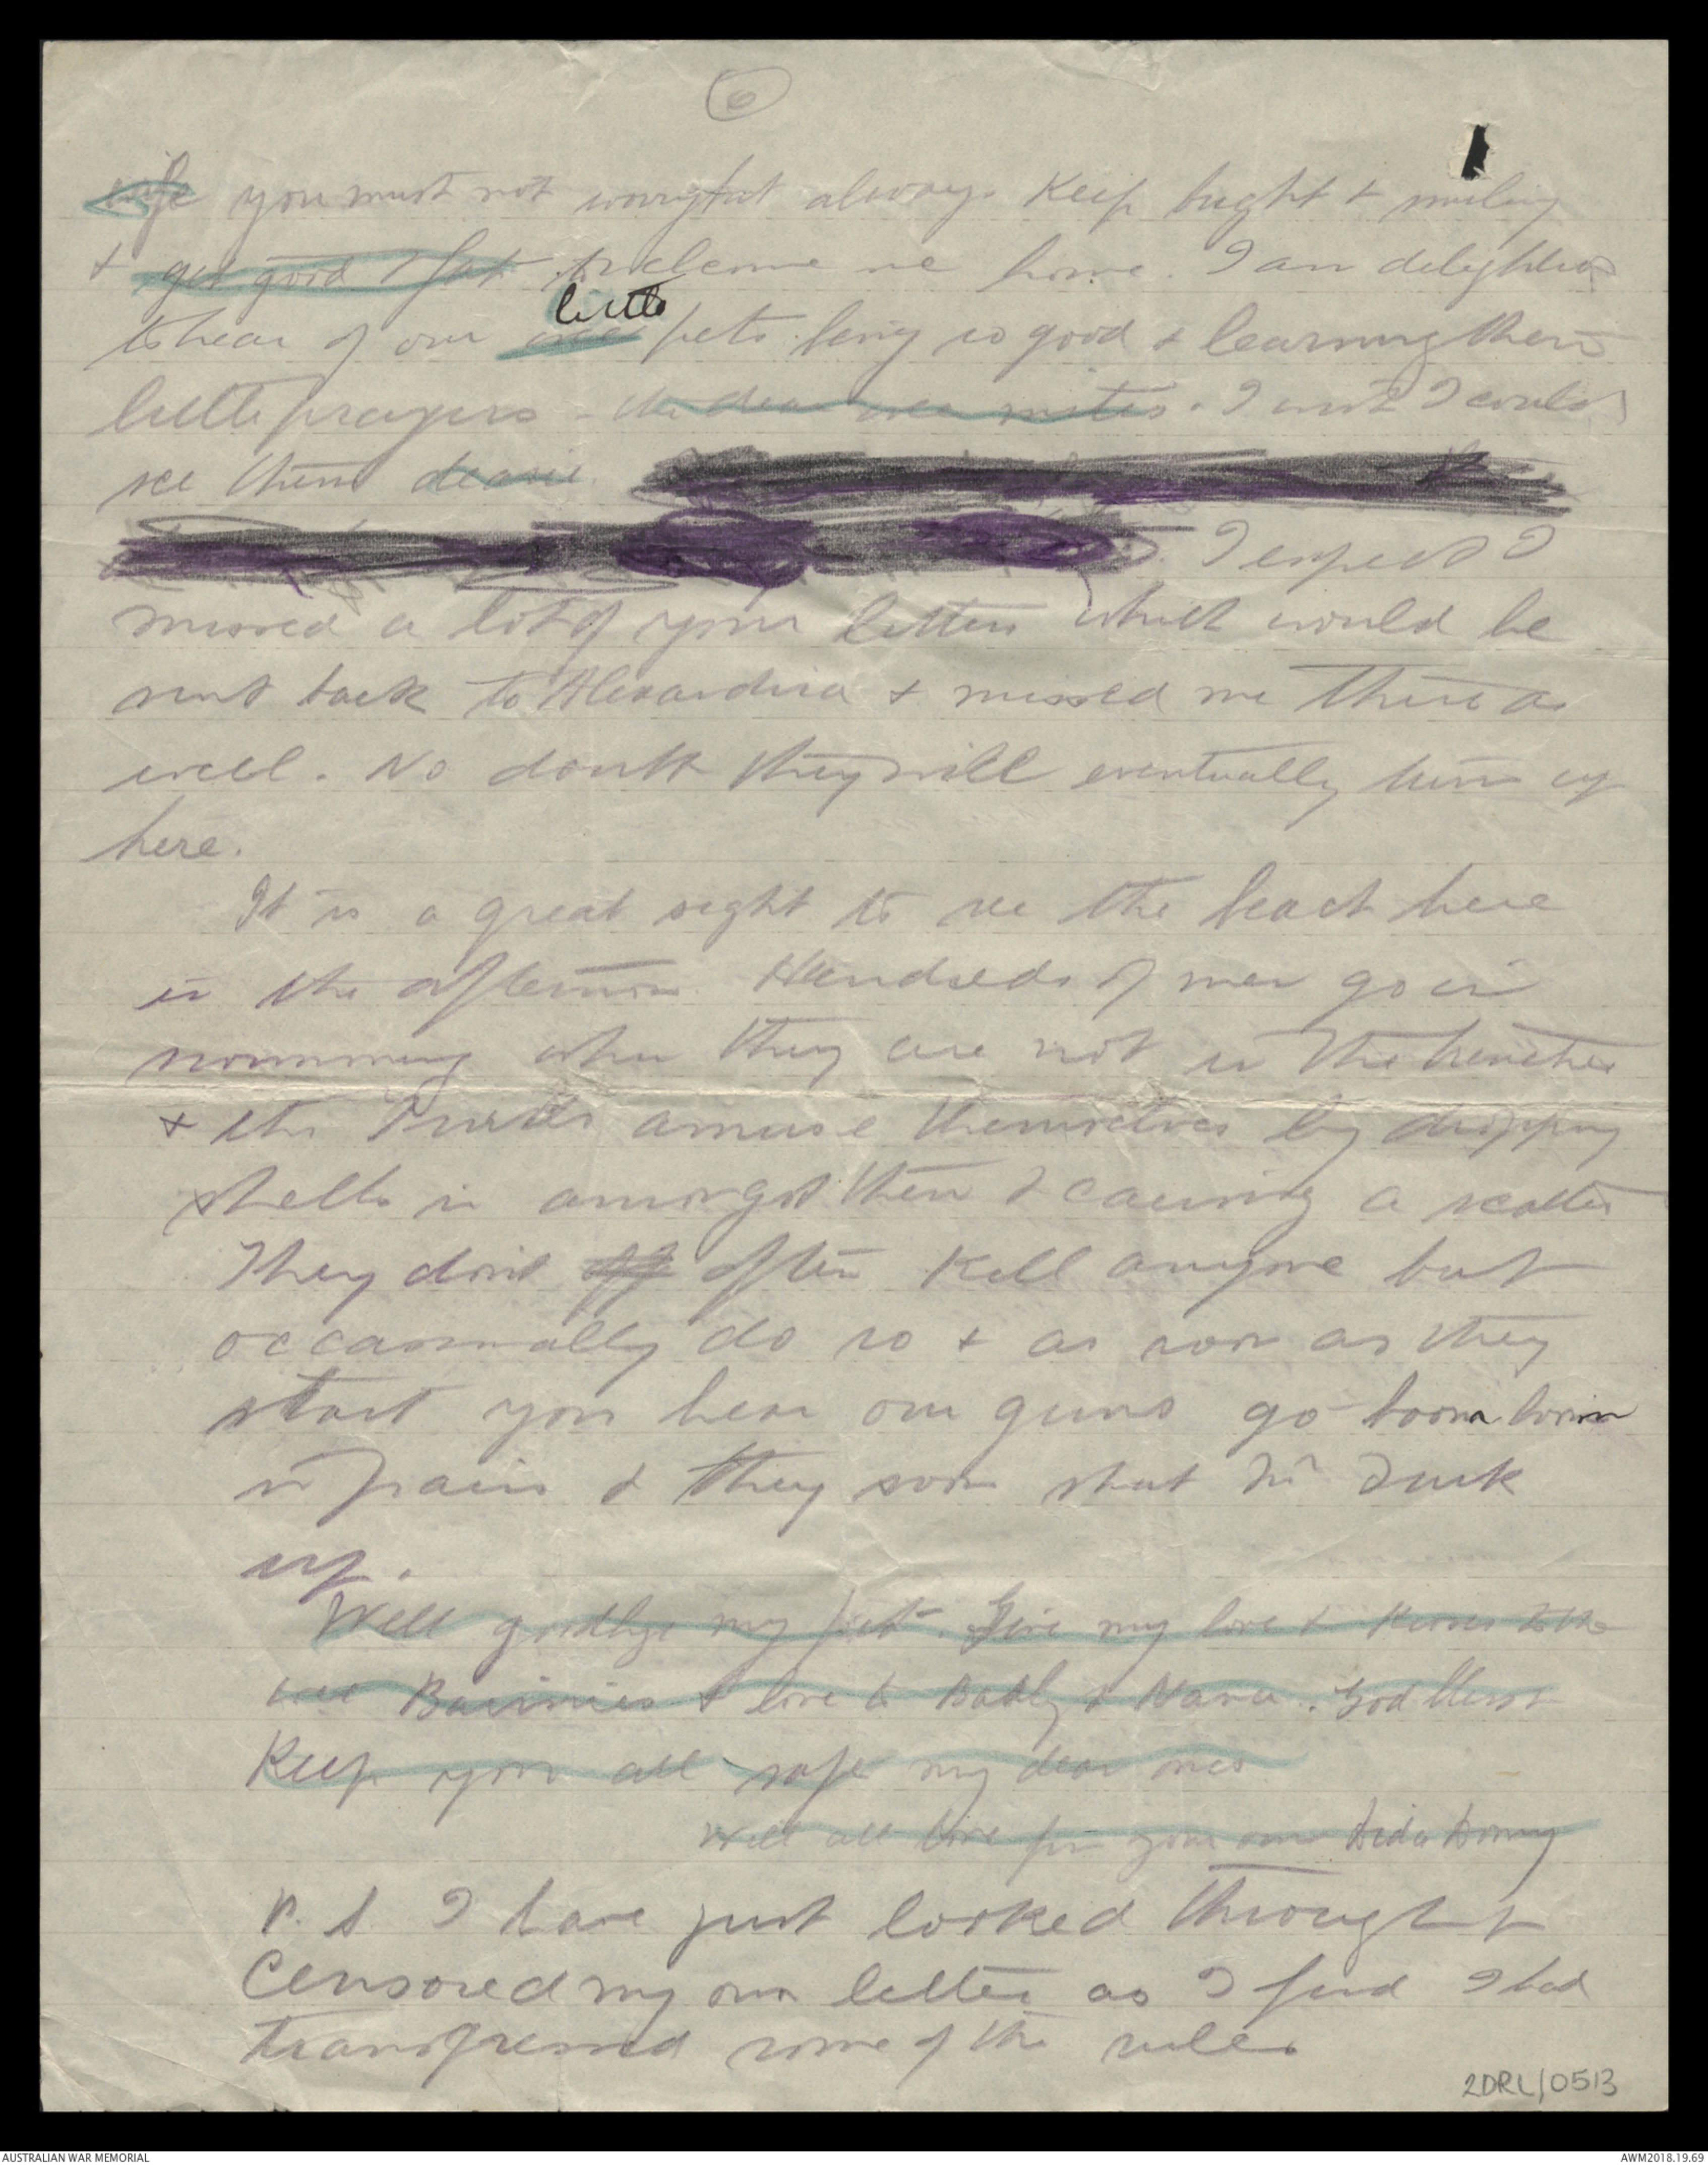 6
wife you must not worry but always keep bright & smiling
& get good & fat to welcome me home. I am delighted
little
to hear of our wee pets being so good & learning their
little prayers - the dear wee mites. I wish I could
see them dearie.
I expect I
missed a lot of your letters which would be
sent back to Alexandria & missed me there as
well. No doubt they will eventually turn up
here.
It is a great sight to see the beach here
in the afternoon. Hundreds of men go in
swimming when they are not in the trenches
& the Turks amuse themselves by dropping
shells in amongst them & causing a scatter
They dont often kill anyone but
occasionally do so & as soon as they
start you hear our guns go boom boom
in pairs & they soon shut Mr Turk
up.
Well goodbye my pet. Give my love & kisses to the
wee Bairnies & love to & Nana. God bless
Keep you all safe my dear ones
With all love from your own
P.S I have just looked through &
Censored my own letter as I find I had
transgressed some of the rules
2DRL/0513
AUSTRALIAN WAR MEMORIAL
AWM2018.19.69